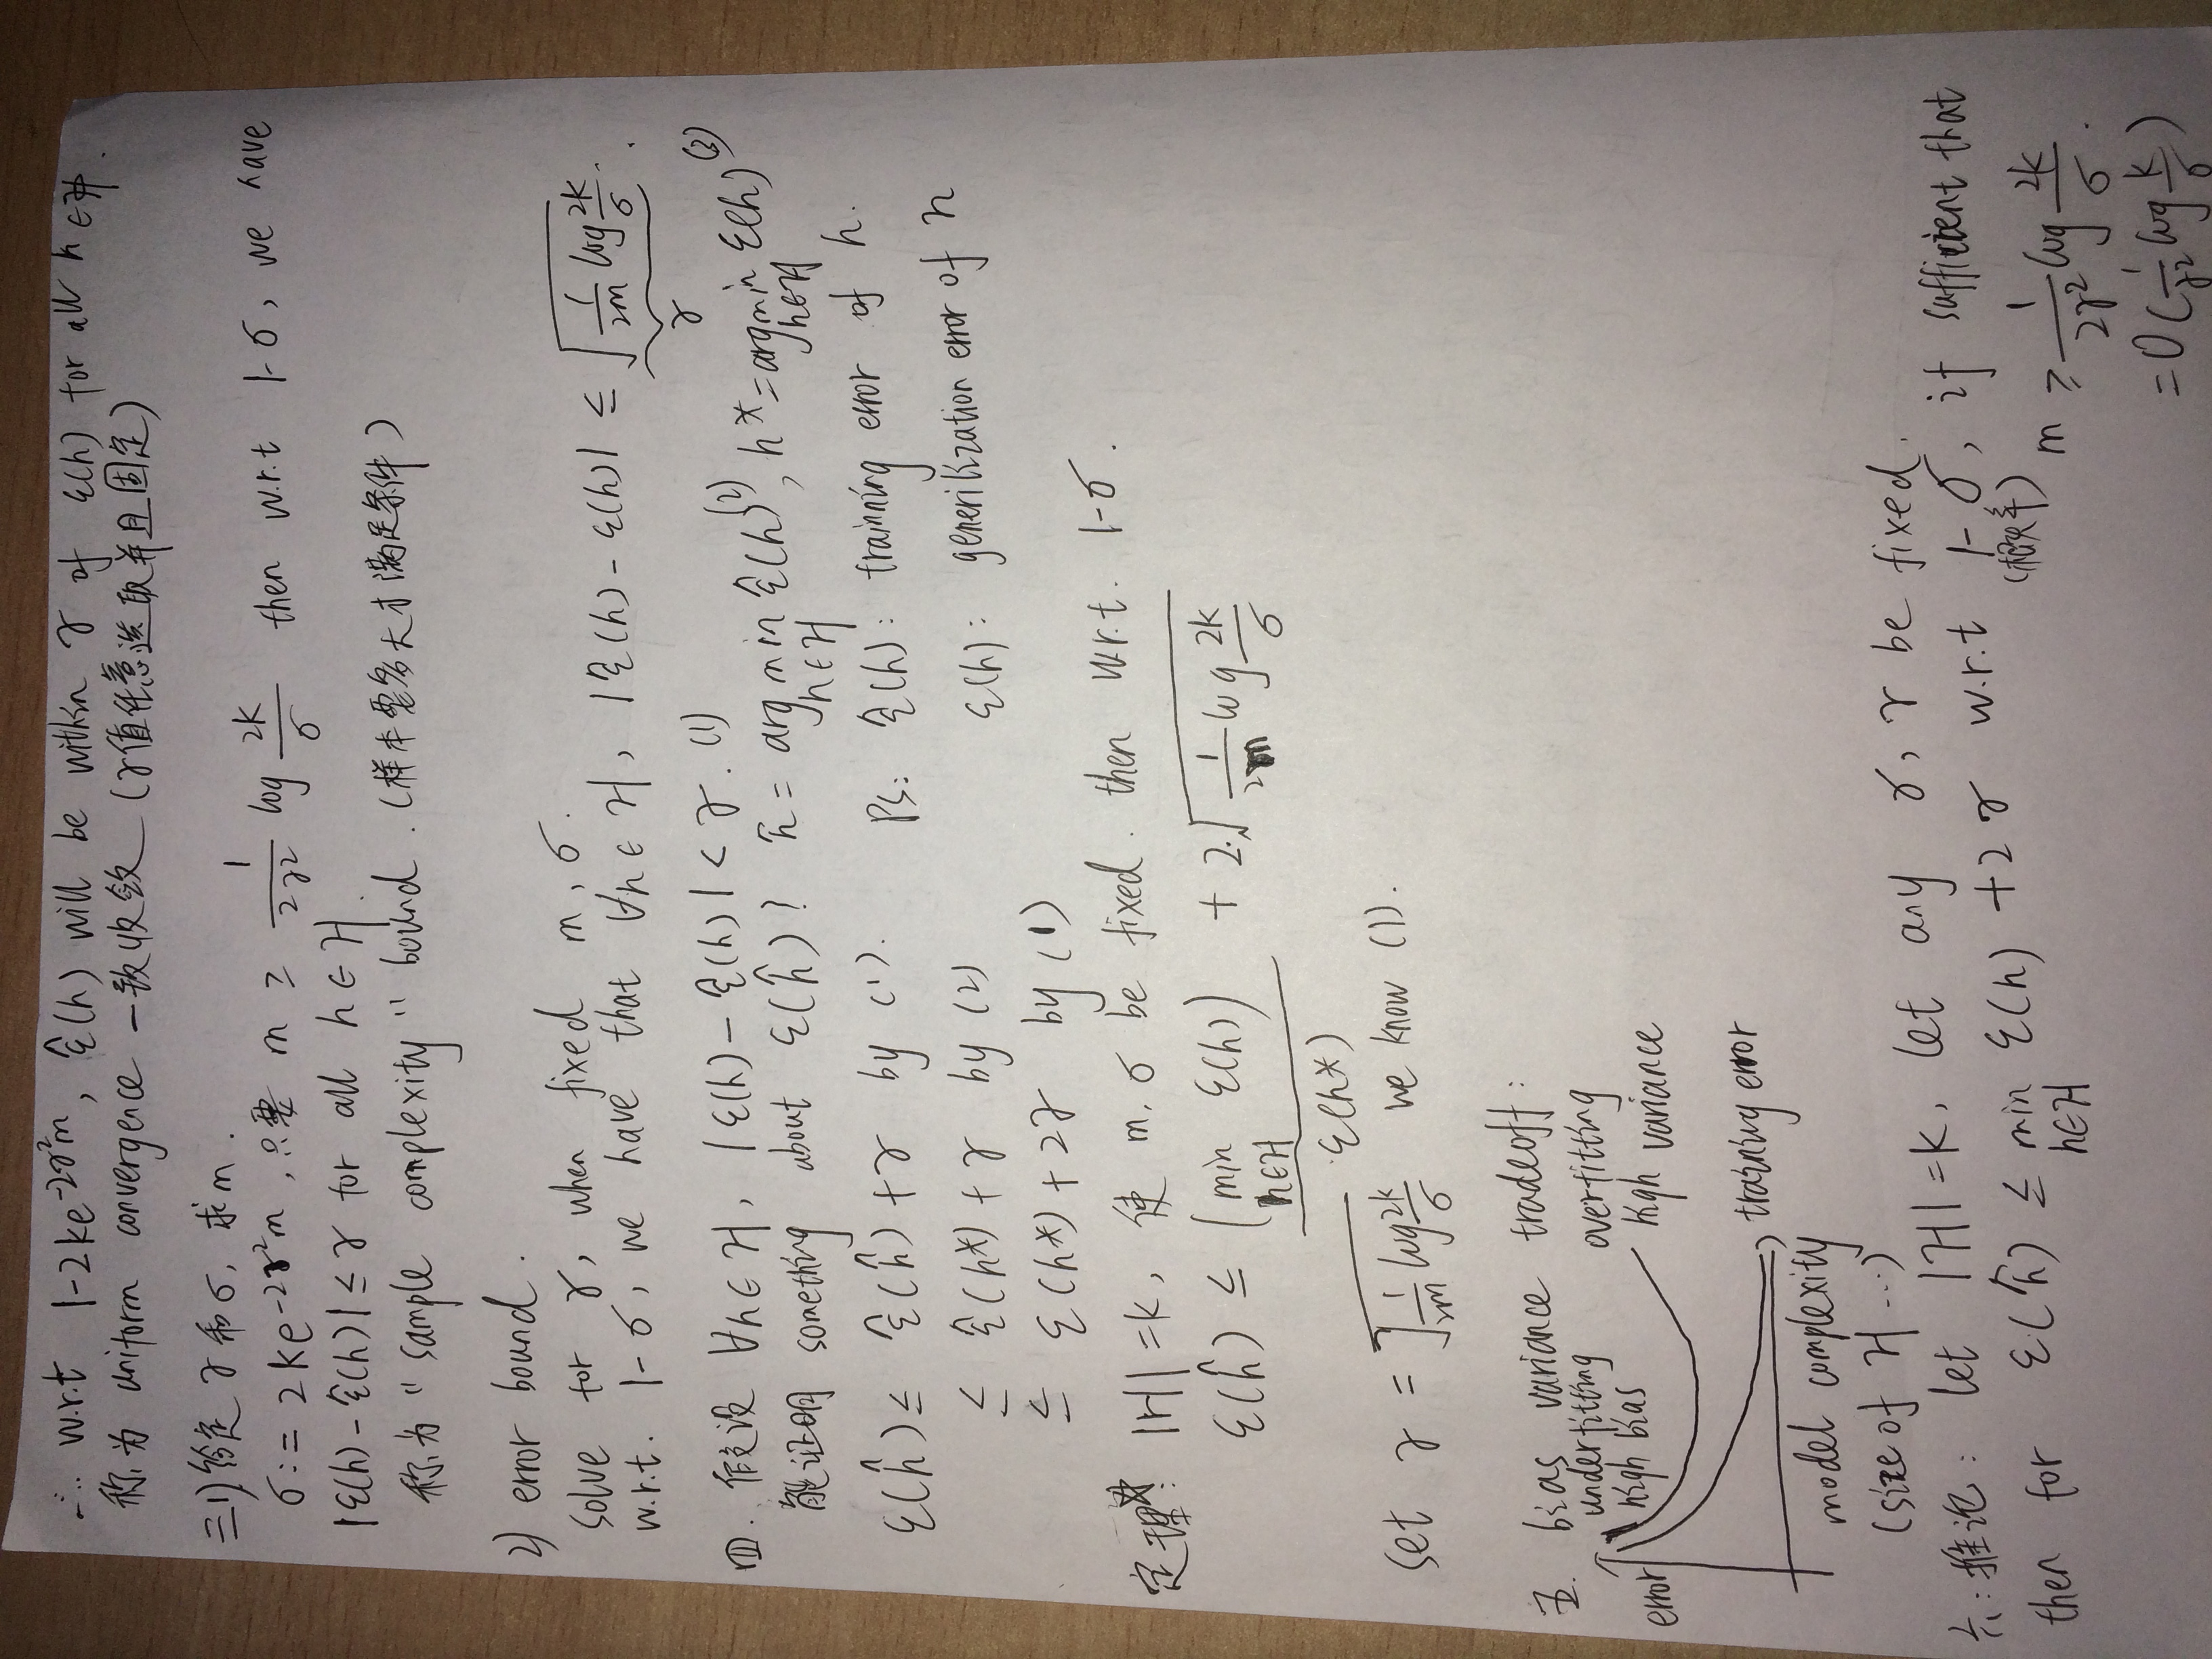 ∴ w.r.t 1-2ke^{-2γ²m}, ε̂(h) will be within γ of ε(h) for all h ∈ H.
称为 uniform convergence 一致收敛 (γ值任意选取并且固定)
三1) 给定 γ 和 σ, 求 m.
σ := 2ke^{-2γ²m}, 只要 m ≥ 1/(2γ²) log 2k/σ then w.r.t 1-σ, we have
|ε(h) - ε̂(h)| ≤ γ for all h ∈ H.
称为 "sample complexity" bound. (样本要多大才满足条件)
2) error bound.
solve for γ, when fixed m, σ.
w.r.t. 1-σ, we have that ∀h ∈ H, |ε̂(h) - ε(h)| ≤ √(1/(2m) log 2k/σ).
γ
四. 假设 ∀h ∈ H, |ε(h) - ε̂(h)| < γ. (1)
能证明 something about ε(ĥ)? ĥ = arg min_{h∈H} ε̂(h) (2), h* = argmin_{h∈H} ε(h) (3)
ε(ĥ) ≤ ε̂(ĥ) + γ by (1). Ps: ε̂(h): trainning error of h.
≤ ε̂(h*) + γ by (2) ε(h): generilization error of h
≤ ε(h*) + 2γ by (1)
定理*: |H| = k, 使 m, σ be fixed. then w.r.t. 1-σ.
ε(ĥ) ≤ (min_{h∈H} ε(h)) + 2·√(1/(2m) log 2k/σ)
ε(h*)
set γ = √(1/(2m) log 2k/σ) we know (1).
五. bias variance tradeoff:
underfitting overfitting
high bias high variance
error
training error
model complexity
(size of H ...)
六: 推论: let |H| = k, let any σ, γ be fixed.
then for ε(ĥ) ≤ min_{h∈H} ε(h) + 2γ w.r.t 1-σ, if sufficient that
(概率)
m ≥ 1/(2γ²) log 2k/σ.
= O(1/γ² log k/σ)